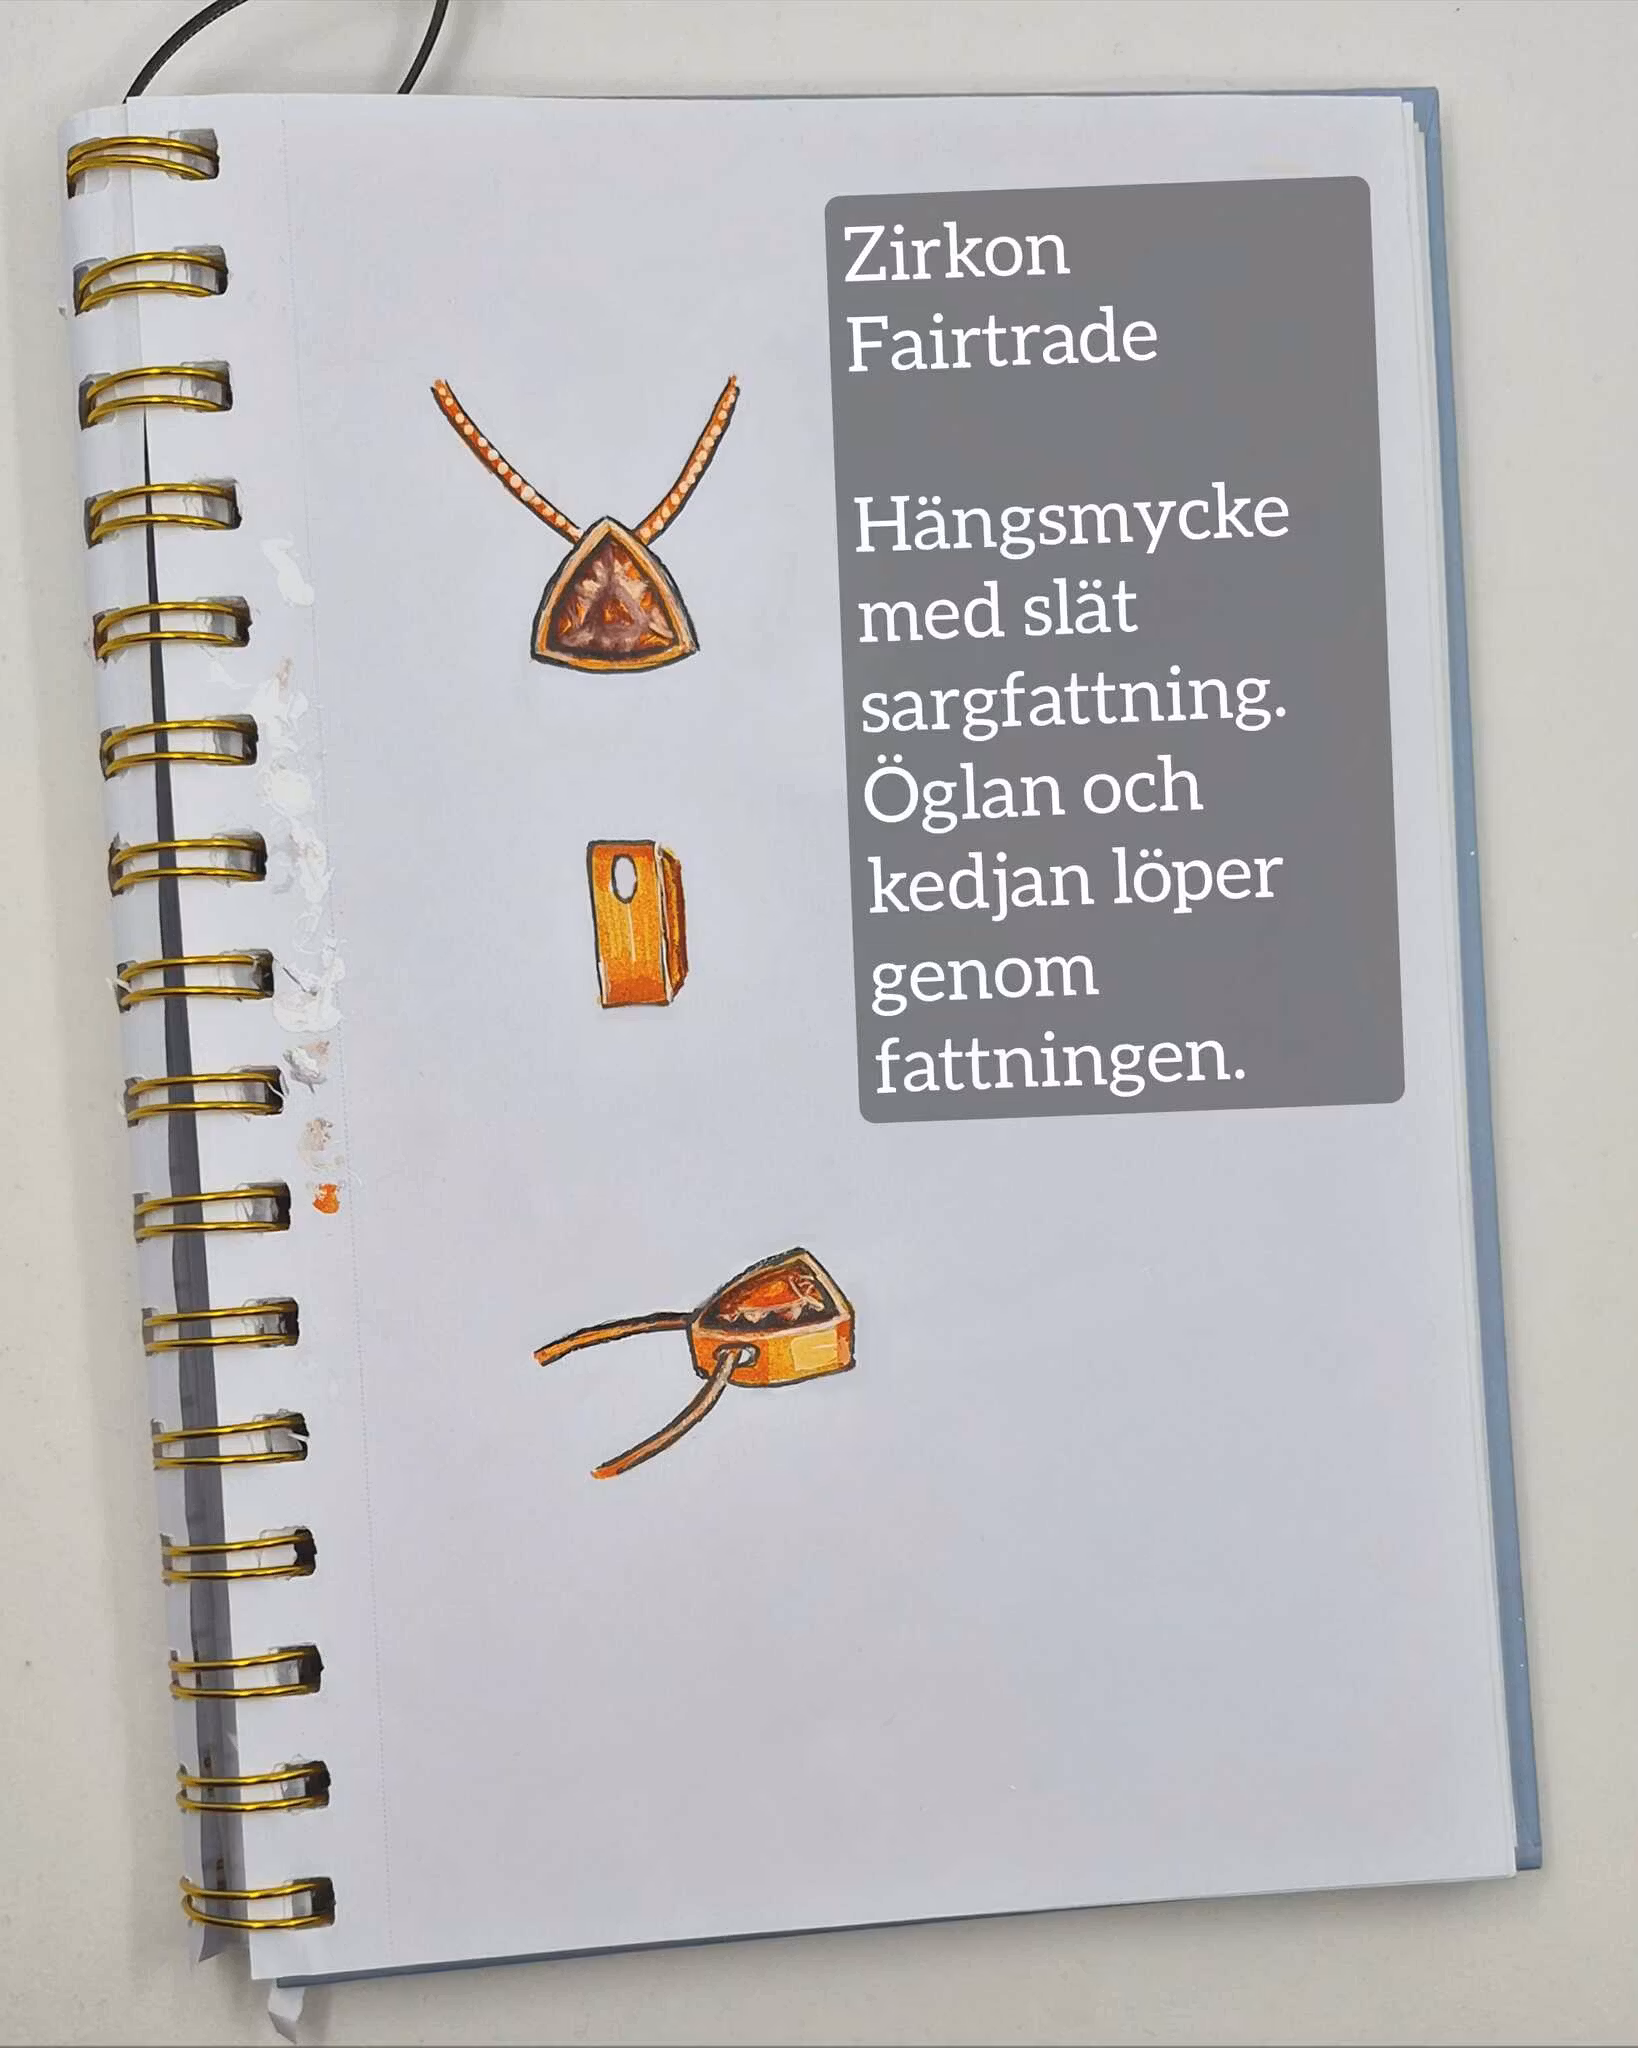 Zirkon
Fairtrade
Hängsmycke
med slät
sargfattning.
Öglan och
kedjan löper
genom
fattningen.